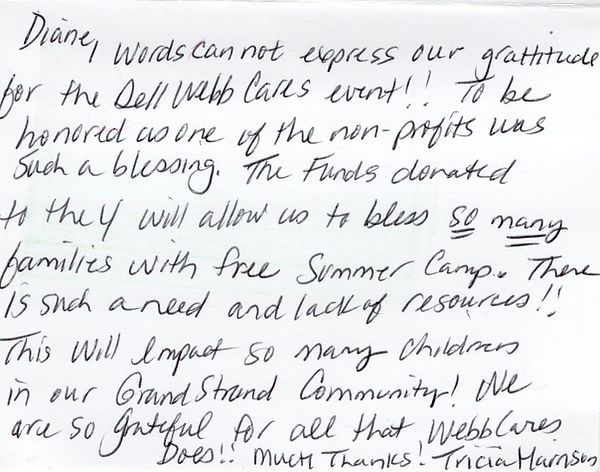 Diane, words cannot express our grattitude
for the Dell Webb Cares event!! To be
honored as one of the non-profits was
such a blessing. The Funds donated
to the Y will allow us to bless so many
families with free Summer Camp. There
is such a need and lack of resources!!
This will Impact so many children
in our Grand Strand Community! We
are so grateful for all that WebbCares
Does!! Much Thanks! Tricia Harrison